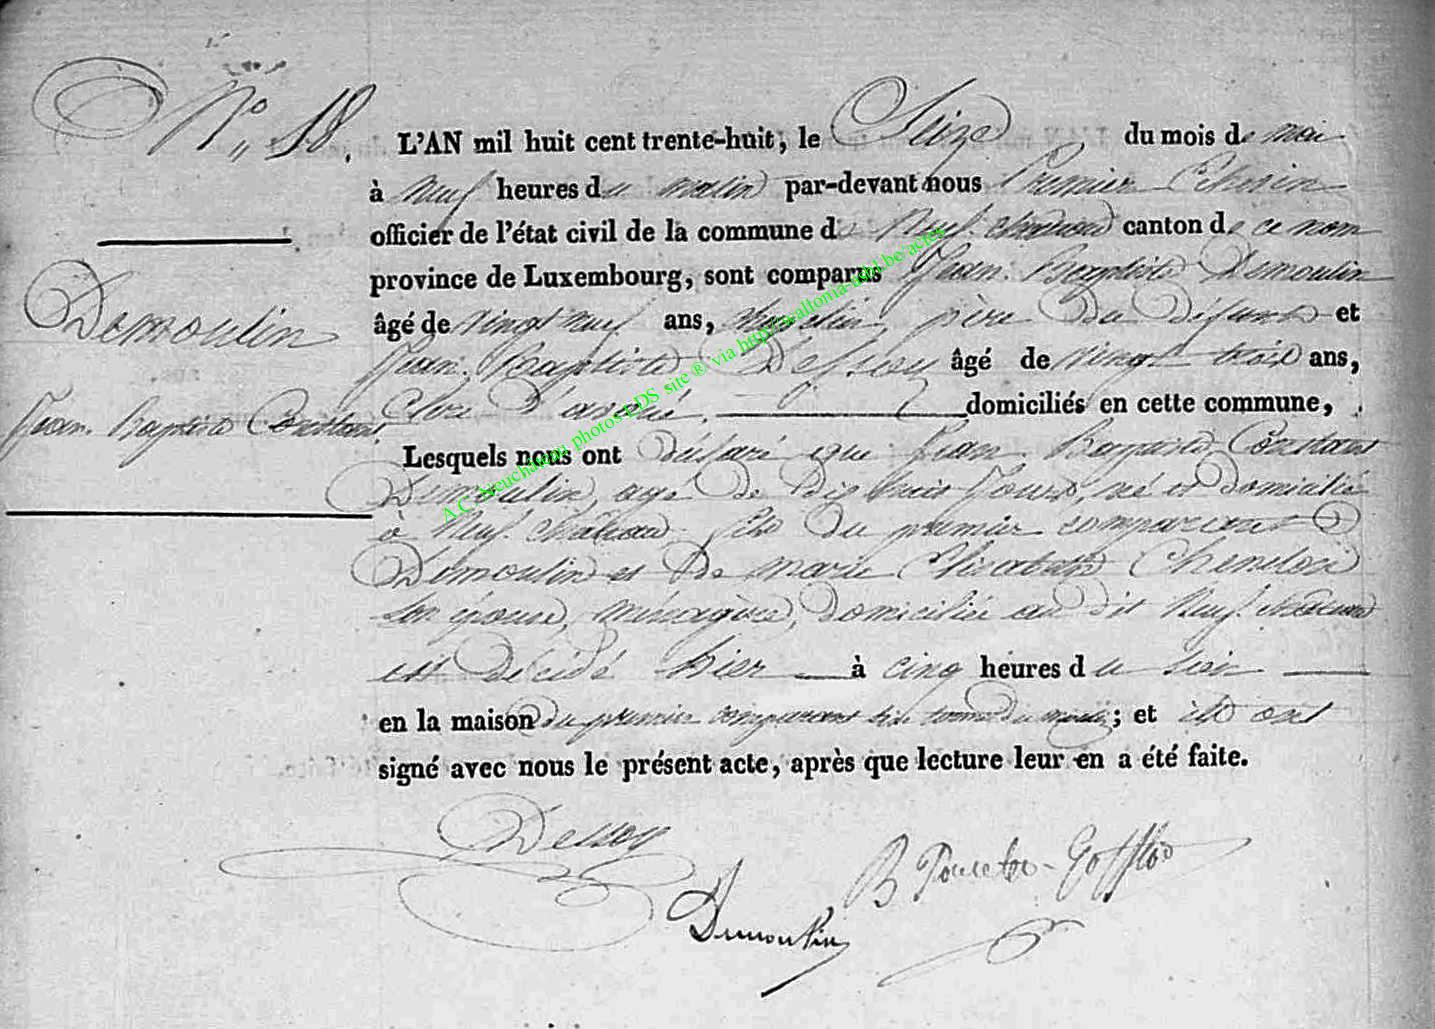 N° 18.
L'AN mil huit cent trente-huit, le Seize du mois de mai
à Neuf heures du matin par-devant nous Premier Echevin
officier de l'état civil de la commune de Neufchateau canton de ce nom
province de Luxembourg, sont comparus Jean Baptiste Demoulin
âgé de vingt neuf ans, père du défunt et
Jean Baptiste Dessoy âgé de vingt trois ans,
Clerc d'avoué. domiciliés en cette commune,
Lesquels nous ont déclaré que Jean Baptiste Constant
Demoulin, agé de dix huit Jours, né et domicilié
à Neufchâteau fils du premier comparant
Demoulin et De marie Elisabeth
son épouse, ménagère, domiciliée au dit Neufchâteau
est décédé hier à cinq heures du soir
en la maison du premier comparant ; et ils ont
signé avec nous le présent acte, après que lecture leur en a été faite.
Demoulin
Jean Baptiste Constant
Dessoy
Demoulin
B Poncelet-Gofflot
A.C. Neuchâteau photos LDS site ® via http://wallonia-asbl.be/actes